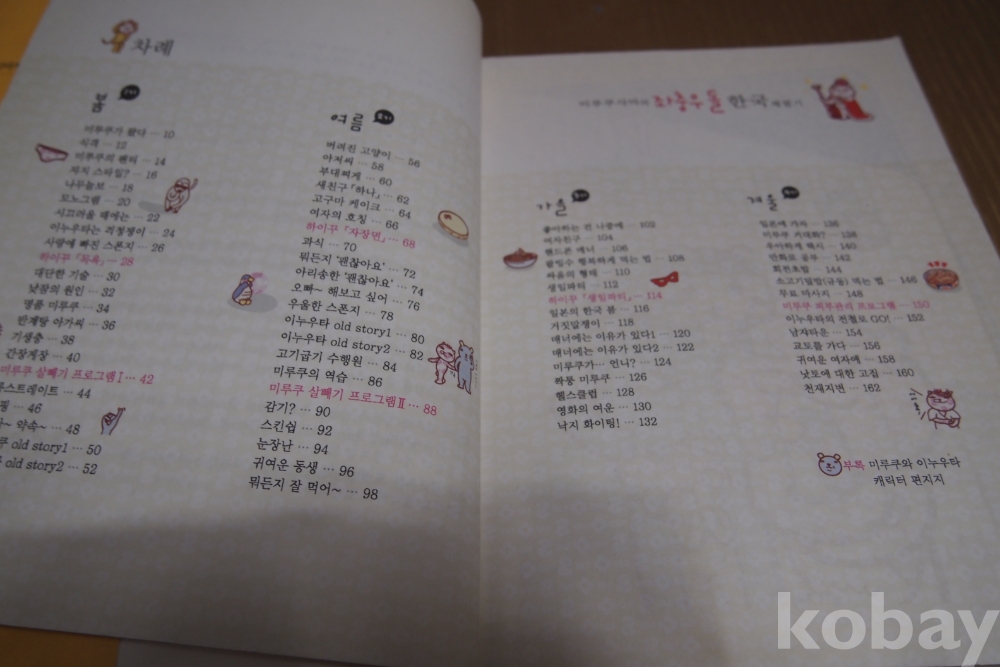 차례
봄
미루쿠가 왔다 … 10
식객 … 12
미루쿠의 팬티 … 14
저지 스타일? … 16
나무늘보 … 18
모노그램 … 20
시끄러울 때에는 … 22
이누우타는 걱정쟁이 … 24
사랑에 빠진 스폰지 … 26
하이꾸 「목욕」 … 28
대단한 기술 … 30
낮잠의 원인 … 32
명품 미루쿠 … 34
반계탕 아가씨 … 36
기생충 … 38
간장게장 … 40
미루쿠 살빼기 프로그램 I … 42
스트레이트 … 44
… 46
~ 약속~ … 48
old story1 … 50
old story2 … 52
여름
버려진 고양이 … 56
아저씨 … 58
부대찌게 … 60
새친구 「하나」 … 62
고구마 케이크 … 64
여자의 호칭 … 66
하이꾸 「자장면」 … 68
과식 … 70
뭐든지 '괜찮아요' … 72
아리송한 '괜찮아요' … 74
오빠~ 해보고 싶어 … 76
우울한 스폰지 … 78
이누우타 old story1 … 80
이누우타 old story2 … 82
고기급기 수행원 … 84
미루쿠의 역습 … 86
미루쿠 살빼기 프로그램 II … 88
감기? … 90
스킨십 … 92
눈장난 … 94
귀여운 동생 … 96
뭐든지 잘 먹어~ … 98
좌충우돌 한국
가을
좋아하는 건 나중에 … 102
여사친구 … 104
핸드폰 매너 … 106
팥빙수 행복하게 먹는 법 … 108
싸움의 형태 … 110
생일파티 … 112
하이꾸 「생일파티」 … 114
일본의 한국 붐 … 116
거짓말쟁이 … 118
매너에는 이유가 있다1 … 120
매너에는 이유가 있다2 … 122
미루쿠가… 언니? … 124
짜뿡 미루쿠 … 126
헬스클럽 … 128
영화의 여운 … 130
낙지 화이팅! … 132
겨울
일본에 가자 … 136
미루쿠 커대화? … 138
우아하게 택시 … 140
만화로 공부 … 142
회전초밥 … 144
소고기덮밥(규동) 먹는 법 … 146
무료 마사지 … 148
미루쿠 피부관리 프로그램 … 150
이누우타의 전철로 GO! … 152
남자타운 … 154
교토를 가다 … 156
귀여운 여자애 … 158
낫토에 대한 고집 … 160
천재지변 … 162
부록 미루쿠와 이누우타
캐릭터 편지지
kobay